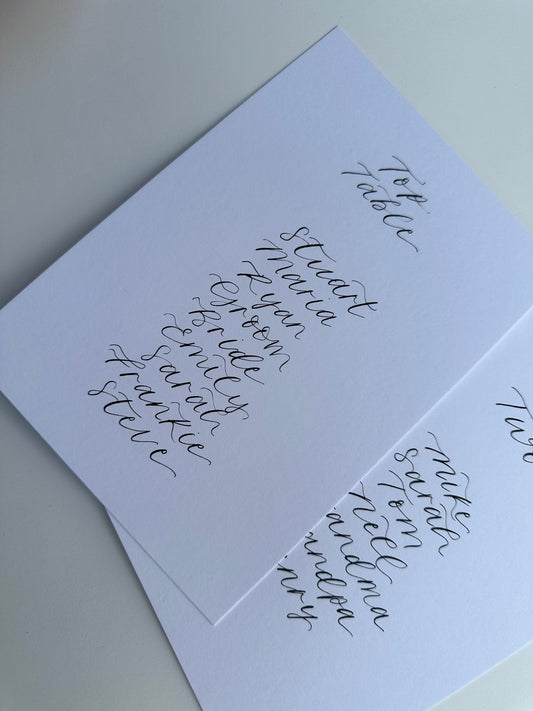 Top
Table
Stuart
Maria
Ryan
Groom
Bride
Emily
Sarah
Frankie
Steve
Two
Mike
Sarah
Tom
Nell
andma
andpa
nry